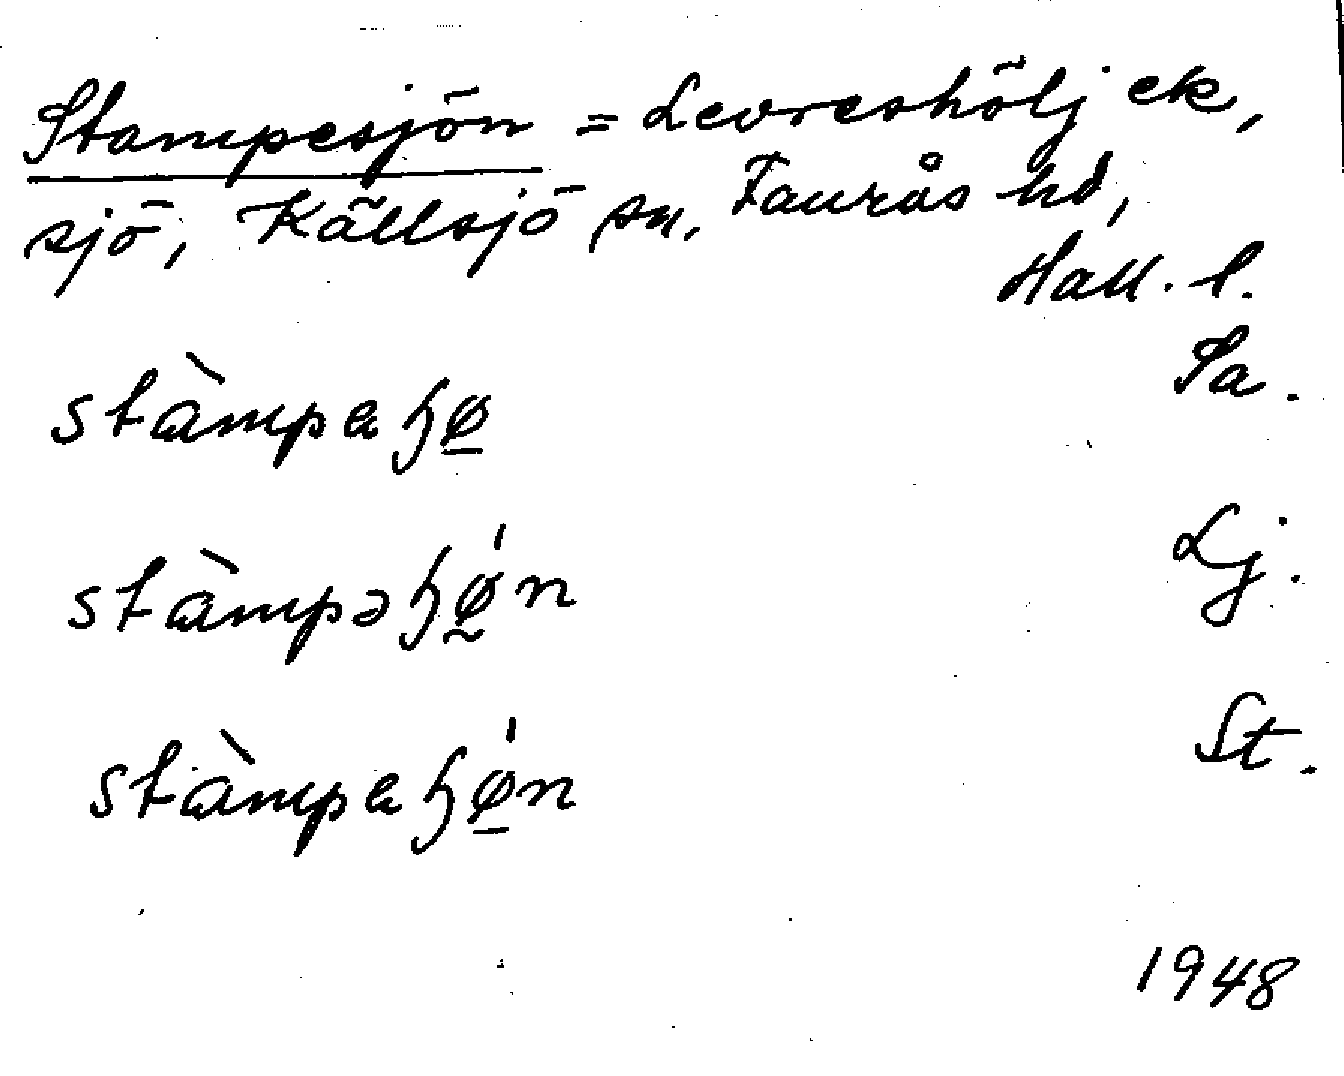 Stampesjön = Levreshölj ek,
sjö, Källsjö sn, Faurås hd,
Hall. l.
Sa.
stàmpaɧø̠
Lj.
stàmpəɧǿ̰n
St.
stàmpaɧǿ̠n
1948